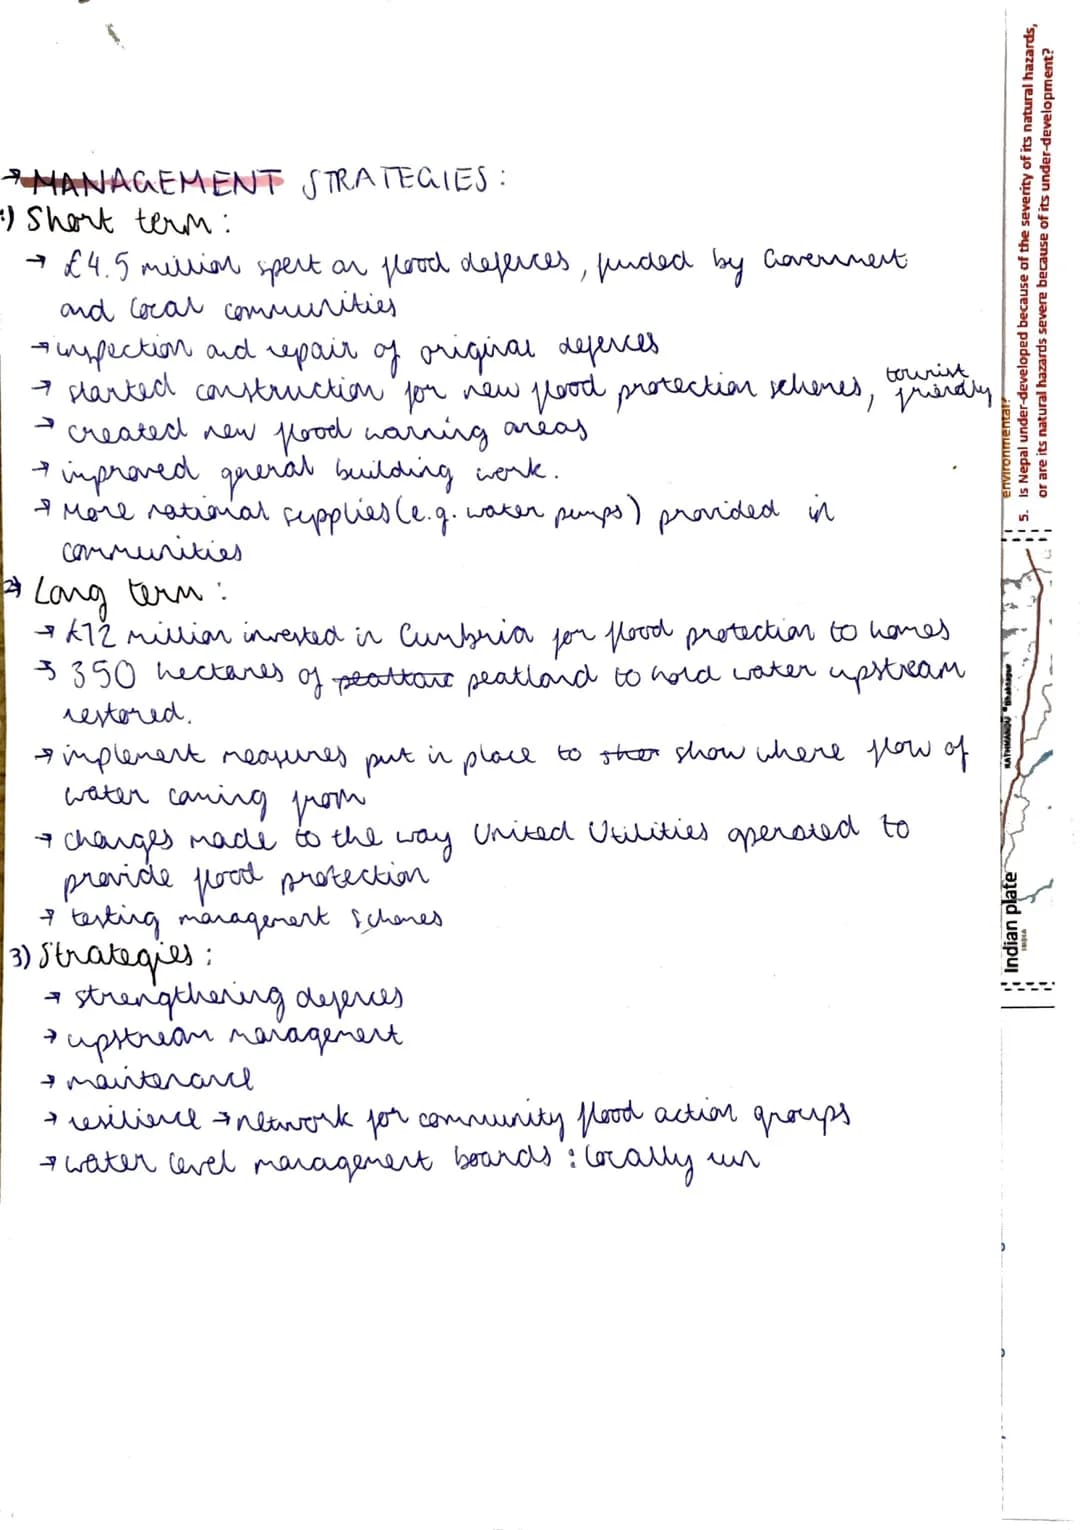 → MANAGEMENT STRATEGIES:
1) Short term:
→ £4.5 million spent on flood defences, funded by Government
and local communities
→ inspection and repair of original defences
→ started construction for new flood protection schemes, tourist friendly
→ created new flood warning areas
→ improved general building work.
→ More national supplies (e.g. water pumps) provided in
communities
2) Long term:
→ £72 million invested in Cumbria for flood protection to homes
→ 350 hectares of peatland to hold water upstream
restored.
→ implement measures put in place to show where flow of
water coming from
→ changes made to the way United Utilities operated to
provide flood protection
→ testing management schemes
3) Strategies:
→ strengthering defences
→ upstream management
→ maintenance
→ resilience → network for community flood action groups
→ water level management boards: locally run
environmental?
5. Is Nepal under-developed because of the severity of its natural hazards,
or are its natural hazards severe because of its under-development?
KATHMANDU Bhaktapur
Indian plate
INDIA